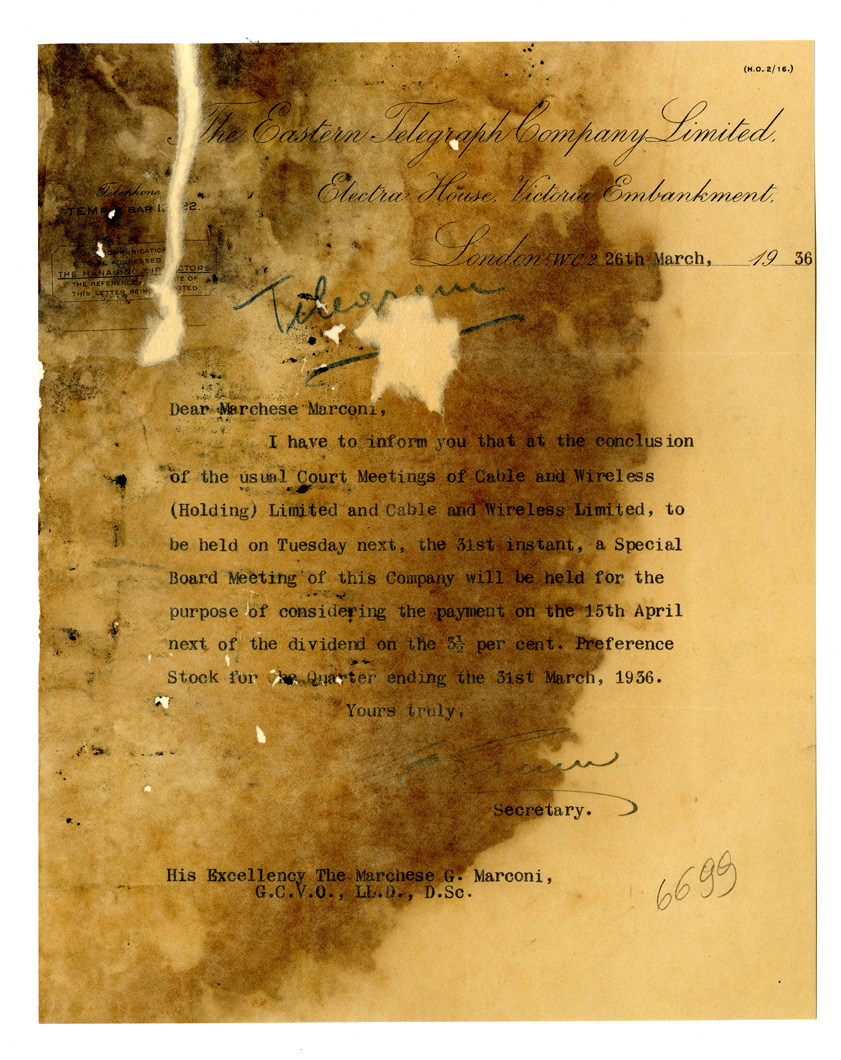 (H.O. 2/16.)
The Eastern Telegraph Company Limited.
Electra House, Victoria Embankment,
London, W.C.2 26th March, 19 36
Telephone
TEMPLE BAR
ADDRESSED
THE MANAGING DIRECTORS
THE REFERENCE DATE OF
THIS LETTER BEING QUOTED
Dear Marchese Marconi,
I have to inform you that at the conclusion
of the usual Court Meetings of Cable and Wireless
(Holding) Limited and Cable and Wireless Limited, to
be held on Tuesday next, the 31st instant, a Special
Board Meeting of this Company will be held for the
purpose of considering the payment on the 15th April
next of the dividend on the 3½ per cent. Preference
Stock for the Quarter ending the 31st March, 1936.
Yours truly,
Secretary.
His Excellency The Marchese G. Marconi,
G.C.V.O., LL.D., D.Sc.
6699